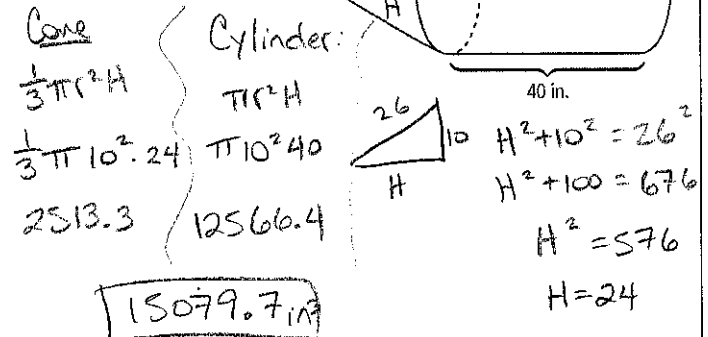 H
40 in.
Cone
1/3 πr²H
1/3 π 10² · 24
2513.3
Cylinder:
πr²H
π10²40
12566.4
26
10
H
H² + 10² = 26²
H² + 100 = 676
H² = 576
H = 24
15079.7 in³